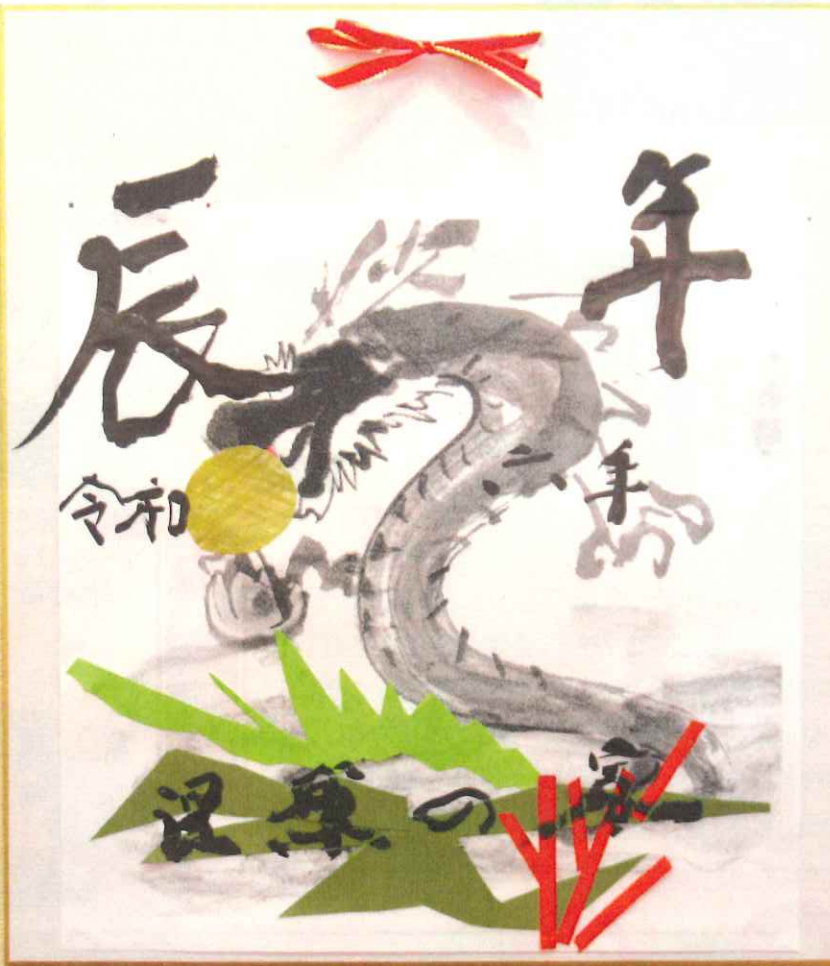 辰年
令和六年
の家